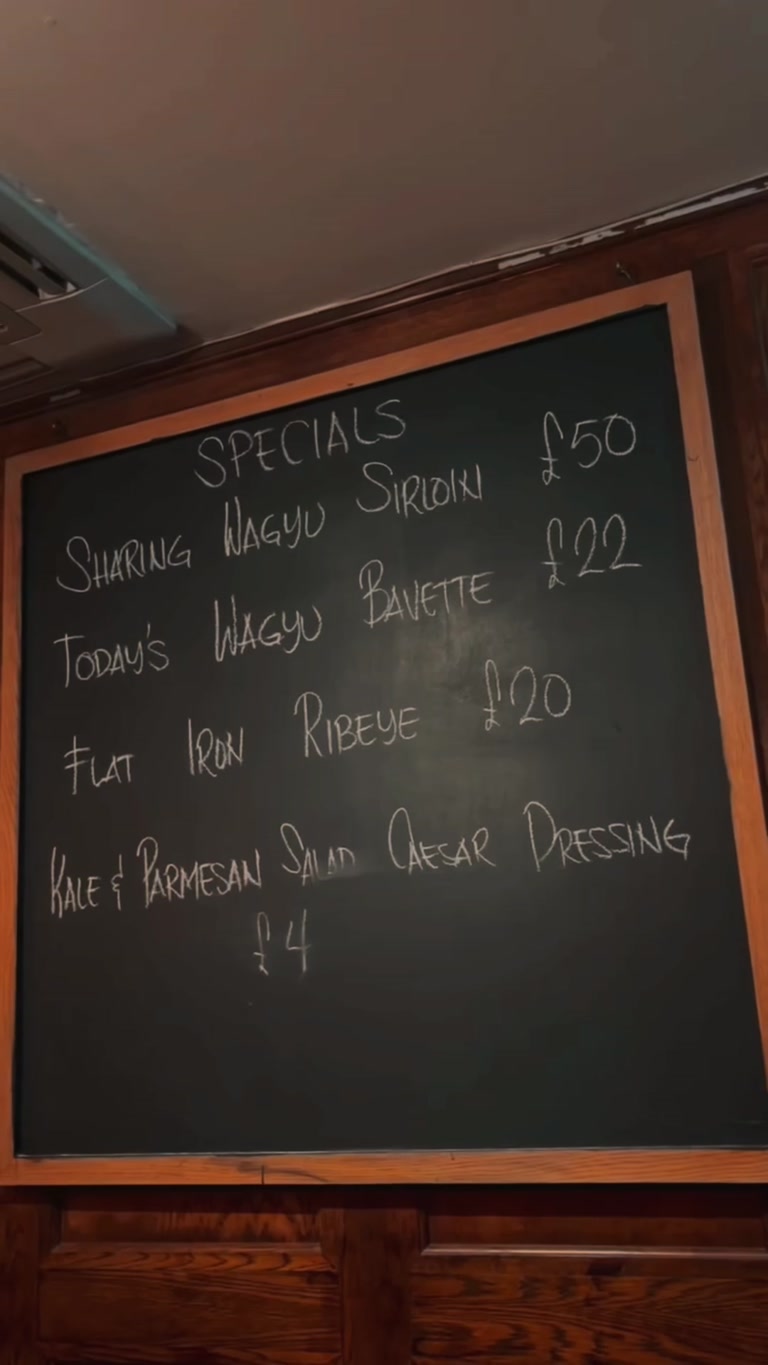 SPECIALS
SHARING WAGYU SIRLOIN £50
TODAY'S WAGYU BAVETTE £22
FLAT IRON RIBEYE £20
KALE & PARMESAN SALAD CAESAR DRESSING
£4